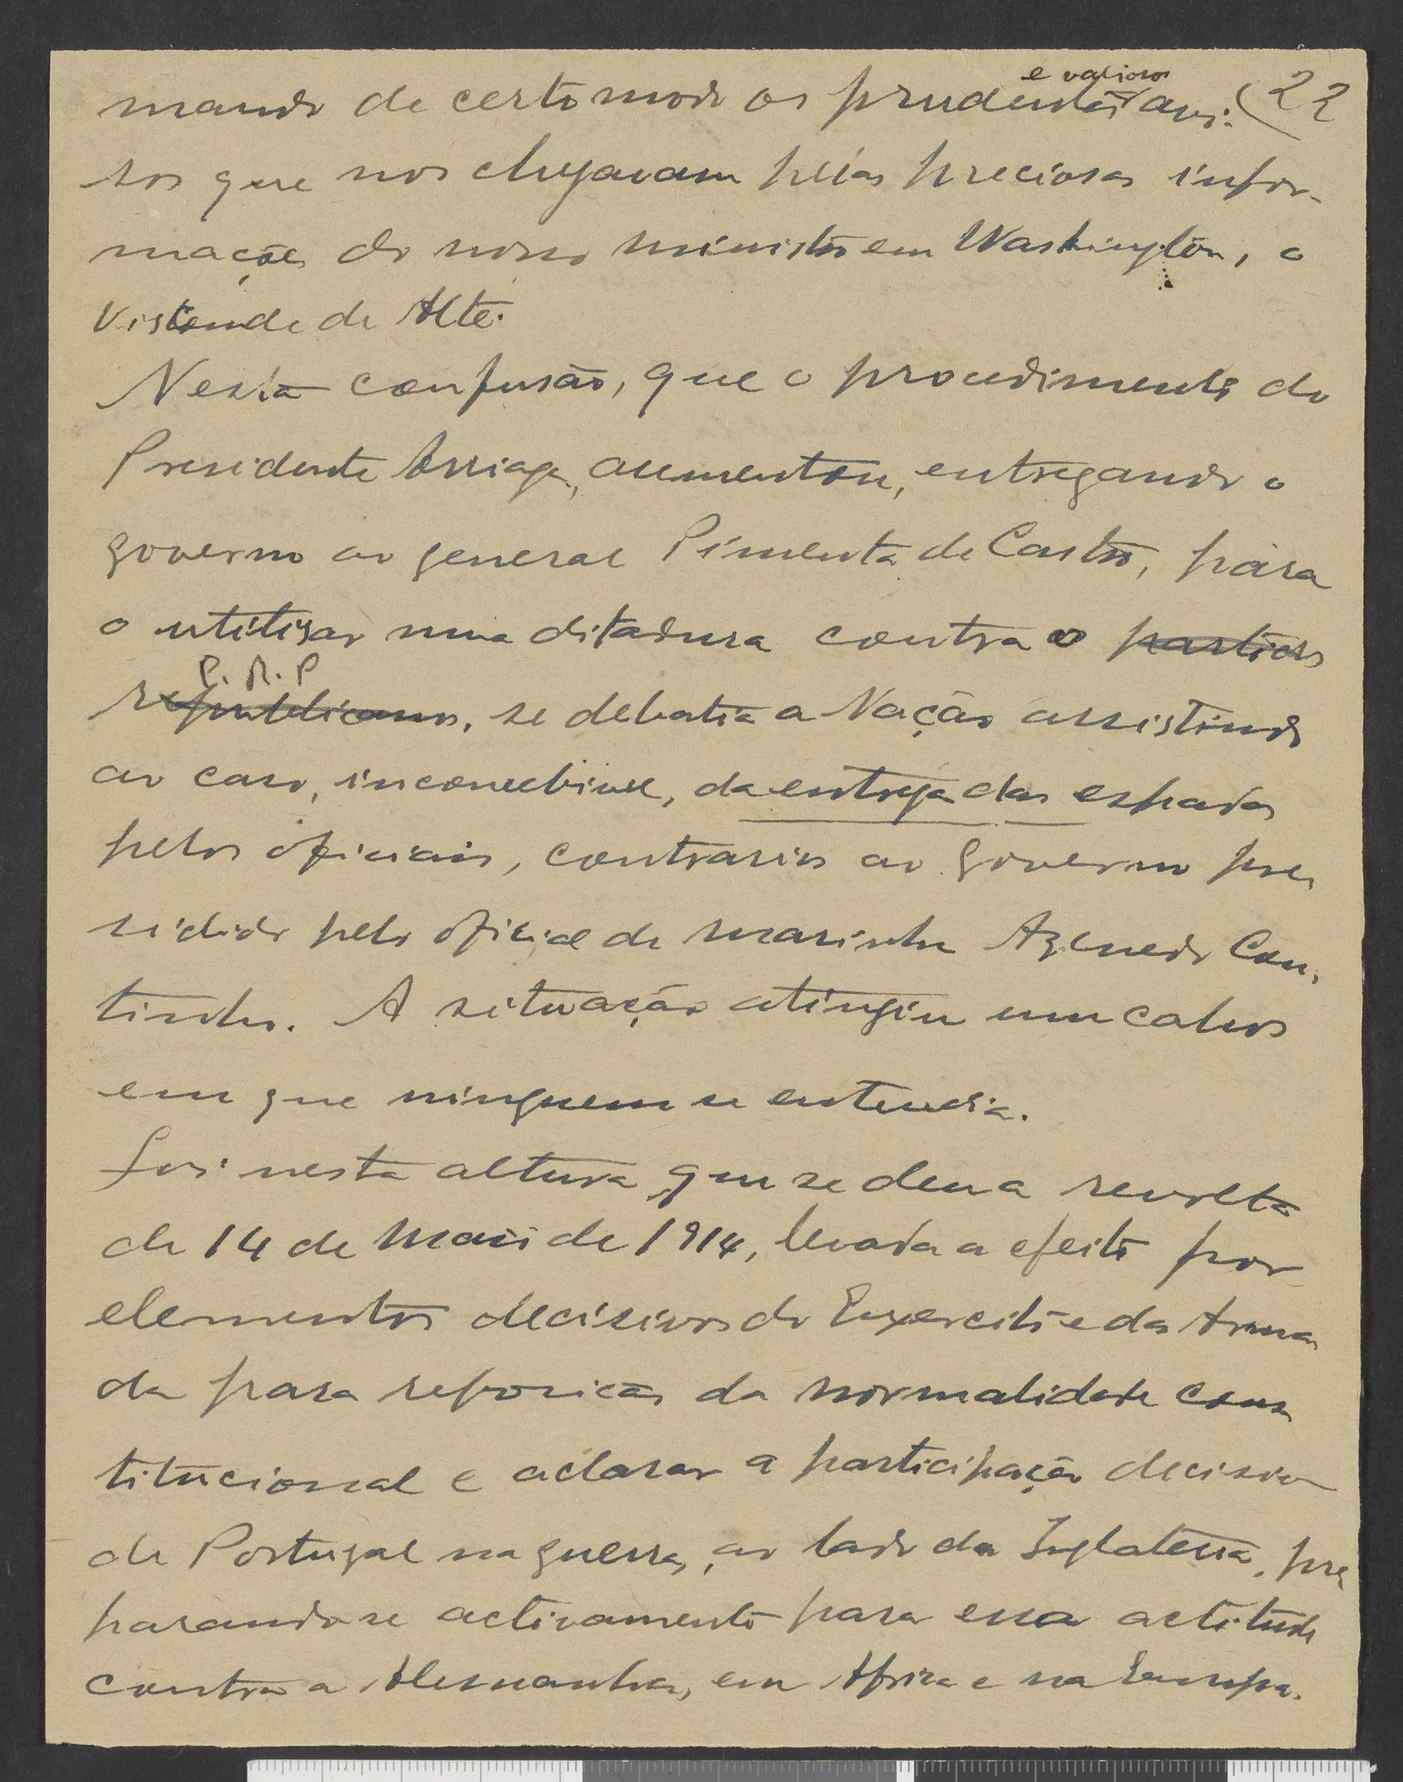 e valiosos
mando de certo modo os prudentes avi- (22
sos que nos chegavam pelas preciosas infor-
mações do nosso ministro em Washington, o
Visconde de Alte.
Nesta confusão, que o procedimento do
Presidente Arriaga, aumentou, entregando o
governo ao general Pimenta de Castro, para
o utilisar numa ditadura contra o partidos
P. R. P
republicanos, se debatia a Nação assistindo
ao caso, inconcebivel, da entrega das espadas
pelos oficiais, contrarios ao governo pre
sidido pelo oficial de marinha Azevedo Cou-
tinho. A situação atingiu um cahos
em que ninguem se entendia.
Foi nesta altura que se deu a revolta
de 14 de Maio de 1914, levada a efeito por
elementos decisivos do Exercito e da Arma
da para reposição da normalidade cons
titucional e aclarar a participação decisiva
de Portugal na guerra, ao lado da Inglaterra, pre
parando-se activamente para essa actitude
contra a Alemanha, em Africa e na Europa.